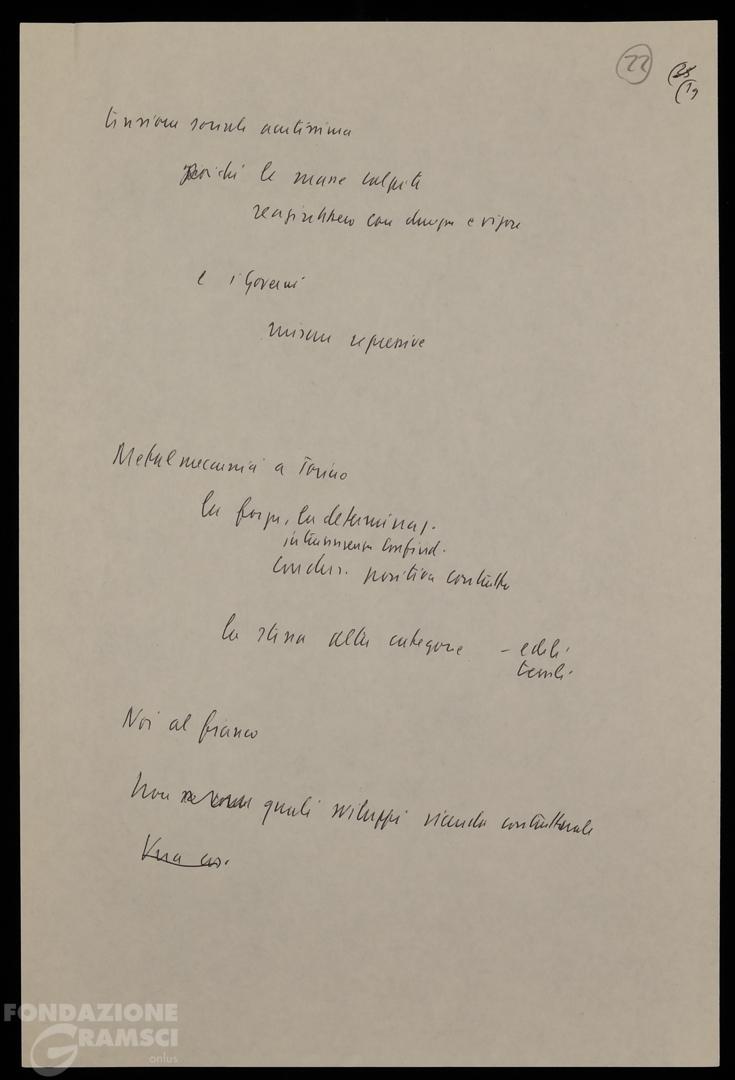 22
tensione sociale acutissima
poiché le masse colpite
reagirebbero con durezza e vigore
e i Governi
misure repressive
Metalmeccanici a Torino
la forza, la determinaz.
intransigenza Confind.
conclus. positiva contratto
lo stesso altre categorie – edili
tessili
Noi al fianco
Non quali sviluppi vicenda contrattuale
Una
FONDAZIONE
GRAMSCI
onlus